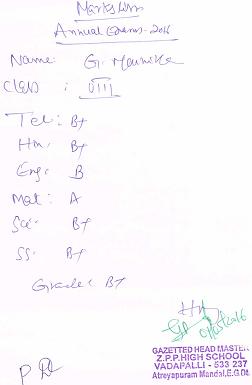 Marks Memo
Annual Exams-2016
Name: G. Mounika
Class : VIII
Tel: B+
Hin: B+
Eng: B
Mat: A
Sci: B+
SS: B+
Grade: B+
GAZETTED HEAD MASTER
Z.P.P.HIGH SCHOOL
VADAPALLI - 533 237
Atreyapuram Mandal,E.G.D